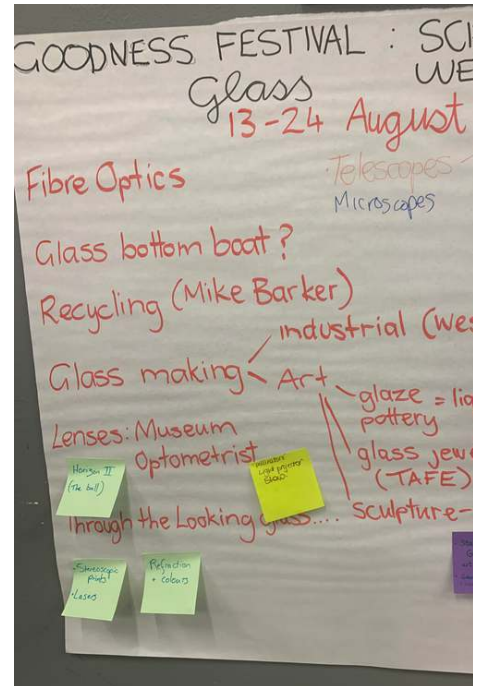 GOODNESS FESTIVAL : SCI
WE
Glass
13-24 August
Fibre Optics
Telescopes -
Microscopes
Glass bottom boat?
Recycling (Mike Barker)
Glass making
industrial (Wes
Art
glaze = liq
pottery
glass jewe
(TAFE)
sculpture-
Lenses: Museum
Optometrist
Horizon II
(The ball)
projector
Through the Looking glass....
• Stereoscopic
prints
• Lasers
Refraction
+ colours